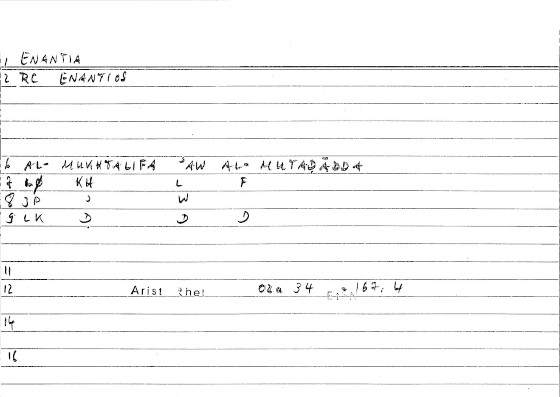 1 ENANTIA
2 RC ENANTIOS
6 AL- MUKHTALIFA ʾAW AL- MUTAḌĀDDA
7 KH L F
8 JP J W
9 LK D D D
11
12 Arist Rhet 02a 34 = 167, 4
14
16